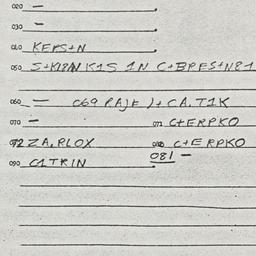 020 —
030 —
040 KEPS+N
050 S+KIRAN K1S 1N C+BPES+N81
060 — 069 PAJE )+ CA.T1K
070 — 071 C+ERPKO
072 ZA.PLOX 080 C+ERPKO
081 —
090 C1TRIN